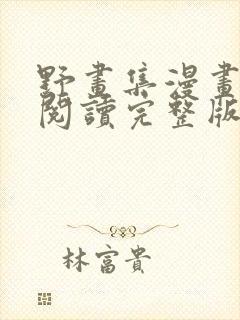 野畫集漫畫
閱讀完整版
林富貴